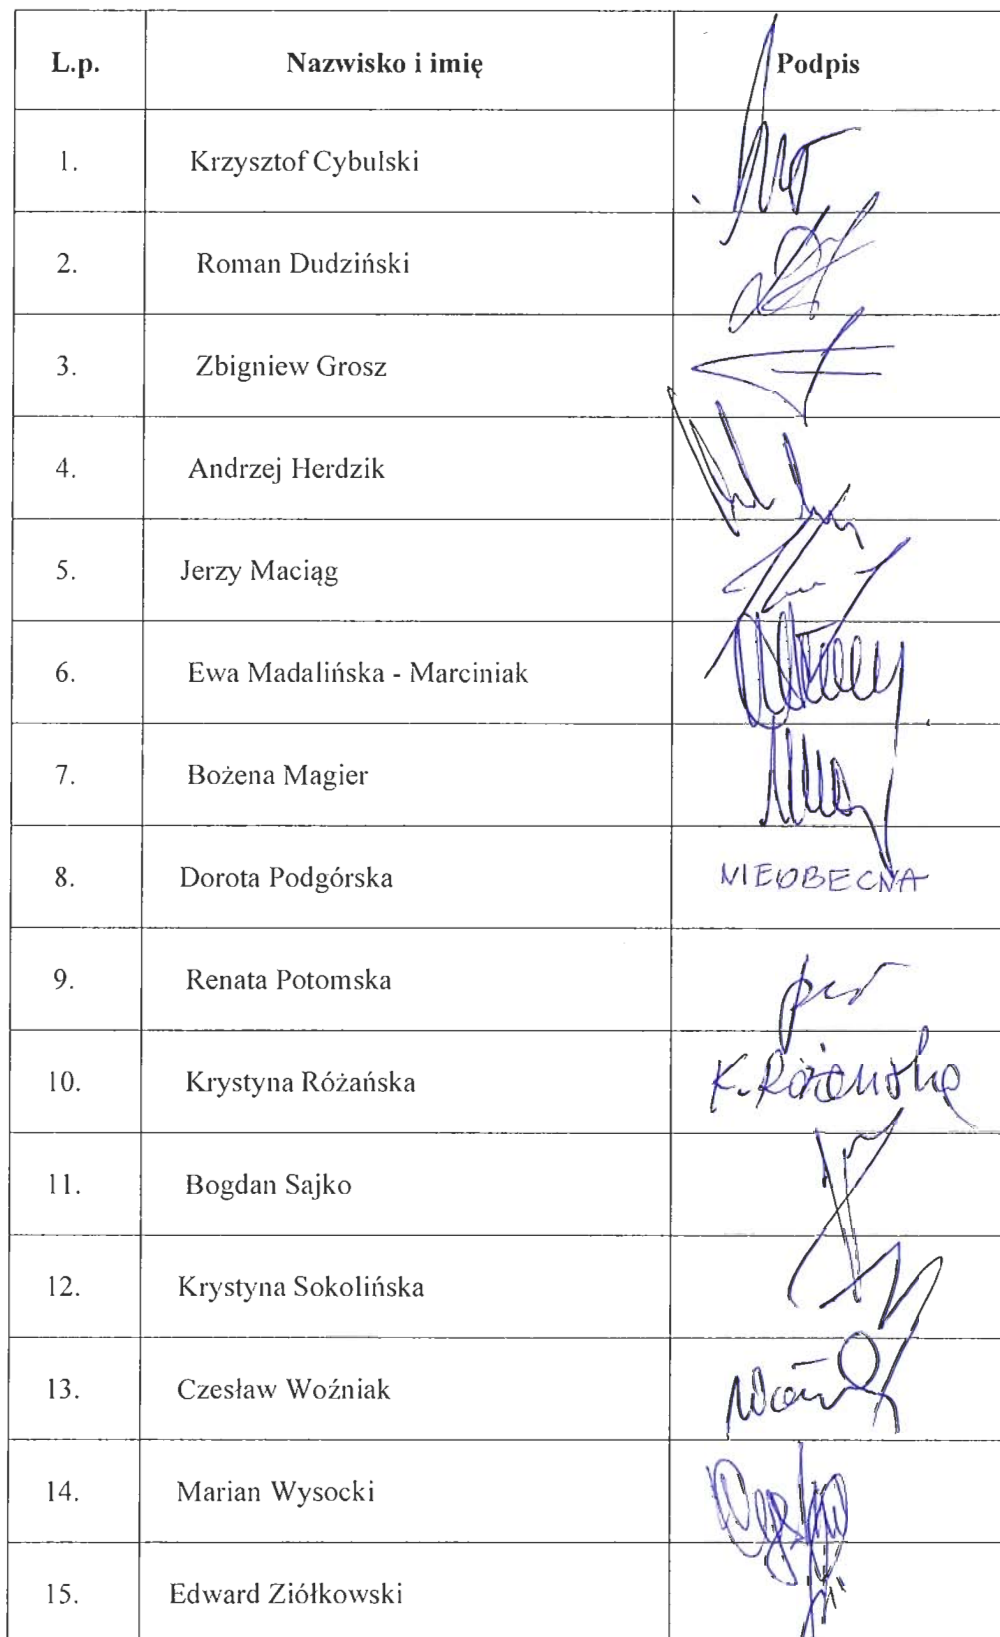 L.p. Nazwisko i imię Podpis
1. Krzysztof Cybulski
2. Roman Dudziński
3. Zbigniew Grosz
4. Andrzej Herdzik
5. Jerzy Maciąg
6. Ewa Madalińska - Marciniak
7. Bożena Magier
8. Dorota Podgórska NIEOBECNA
9. Renata Potomska
10. Krystyna Różańska K. Różańska
11. Bogdan Sajko
12. Krystyna Sokolińska
13. Czesław Woźniak
14. Marian Wysocki
15. Edward Ziółkowski